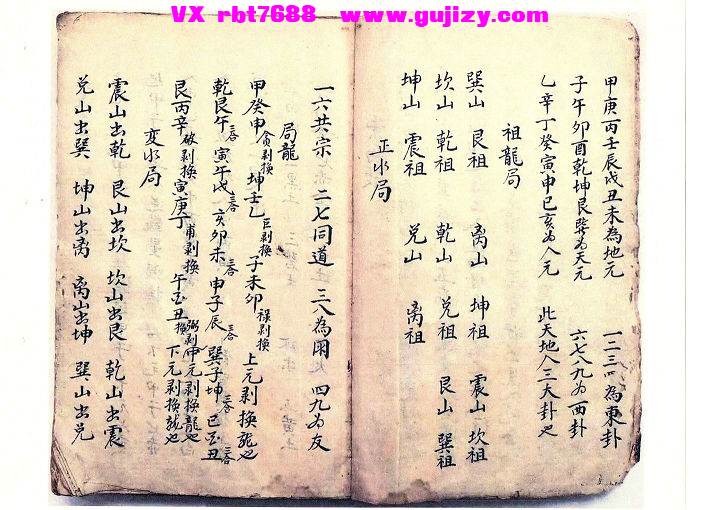 VX rbt7688 www.gujizy.com
甲庚丙壬辰戌丑未為地元 一二三四為東卦
子午卯酉乾坤艮巽为天元 六七八九为西卦
乙辛丁癸寅申巳亥为人元 此天地人三大卦也
祖龍局
巽山 艮祖 离山 坤祖 震山 坎祖
坎山 乾祖 乾山 兑祖 艮山 巽祖
坤山 震祖 兑山 离祖
正水局
一六共宗 二七同道 三八為朋 四九为友
局龍
甲癸申貪剥换 坤壬乙巨剥换 子未卯禄剥换 上元剥换龍也
乾艮午三合 寅午戌三合 亥卯未三合 申子辰三合 巽子坤三合 巳酉丑三合
艮丙辛破剥换 寅庚丁甫剥换 午酉丑弼剥换 中元剥换龍也 下元剥换龍也
变水局
震山出乾 艮山出坎 坎山出艮 乾山出震
兑山出巽 坤山出离 离山出坤 巽山出兑